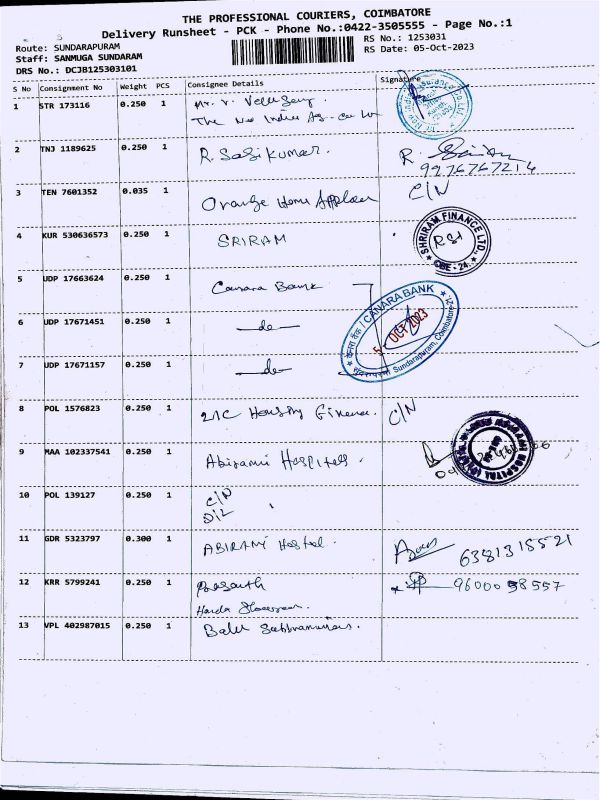 THE PROFESSIONAL COURIERS, COIMBATORE
Delivery Runsheet - PCK - Phone No.:0422-3505555 - Page No.:1
Route: SUNDARAPURAM
Staff: SANMUGA SUNDARAM
DRS No.: DCJB125303101
RS No.: 1253031
RS Date: 05-Oct-2023
S No Consignment No Weight PCS Consignee Details Signature
1 STR 173116 0.250 1 Mr. V.
The New India
2 TNJ 1189625 0.250 1 R. Sasikumar. R.
9976767214
3 TEN 7601352 0.035 1 Orange Home C/N
4 KUR 530636573 0.250 1 SRIRAM
SHRIRAM FINANCE LTD.
CBE - 24.
5 UDP 17663624 0.250 1 Canara Bank
6 UDP 17671451 0.250 1 -do-
केनरा बैंक / CANARA BANK
5 - OCT 2023
Sundarapuram, Coimbatore-21.
7 UDP 17671157 0.250 1 -do-
8 POL 1576823 0.250 1 LIC Housing Finance. C/N
9 MAA 102337541 0.250 1 Abirami Hospitals.
HOSPITAL
10 POL 139127 0.250 1 C/N
D/L
11 GDR 5323797 0.300 1 ABIRAMI Hostel. 6381318521
12 KRR 5799241 0.250 1 Prasanth 9600098557
13 VPL 402987015 0.250 1 Balu